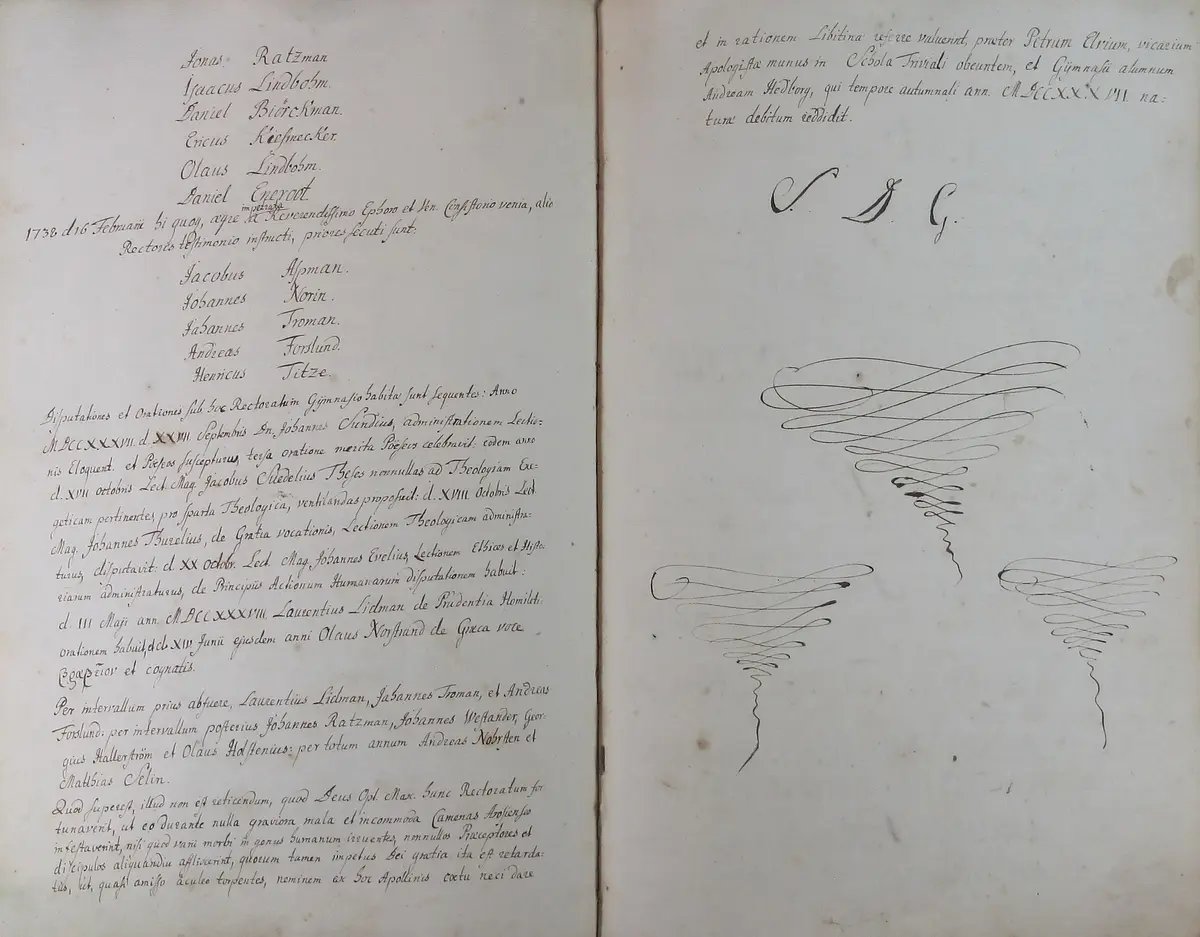 Jonas Ratzman
Isaacus Lindbohm.
Daniel Biörckman.
Ericus
Olaus Lindbohm.
Daniel Eneroot.
impetrata
1738 d 16 Februarii hi quoq, ægre a Reverendissimo Ephoro et Ven. Consistorio venia, alio
Rectores testimonio instructi, priores secuti sunt.
Jacobus Aspman.
Johannes Norin.
Johannes Troman.
Andreas Forslund.
Henricus Titze
Disputationes et Orationes sub hoc Rectoratu in Gymnasio habitæ sunt sequentes: Anno
MDCCXXXVII. d. XXVIII Septembris Dn. Johannes Sundius, administrationem Lectio-
nis Eloquent. et Poëseos suscepturus, tersa oratione merita Poëseos celebravit. eodem anno
d. XVII Octobris Lect. Mag. Jacobus Stedelius Theses nonnullas ad Theologiam Exe-
geticam pertinentes, pro sparta Theologica, ventilandas proposuit: d. XVIII Octobris Lect.
Mag. Johannes Thurelius, de Gratia vocationis, Lectionem Theologicam administra-
turus, disputavit: d. XX Octobr. Lect. Mag. Johannes Evelius, Lectionem Ethices et Histo-
riarum administraturus, de Principiis Actionum Humanarum disputationem habuit:
d. III Maji ann. MDCCXXXVIII. Laurentius Lidman de Prudentia Homilet:
orationem habuit, d. XIV Junii ejusdem anni Olaus Norstrand de Græca voce
et cognatis.
Per intervallum prius abfuere, Laurentius Lidman, Johannes Troman, et Andreas
Forslund: per intervallum posterius Johannes Ratzman, Johannes Westander, Geor-
gius Hallerström et Olaus Holstenius: per totum annum Andreas Nohrsten et
Matthias Selin.
Quod superest, illud non est reticendum, quod Deus Opt. Max. hunc Rectoratum for
tunaverit, ut eo durante nulla graviora mala et incommoda Camenas Arosienses
infestaverint, nisi quod varii morbi in genus humanum irruentes, nonnullos Præceptores et
discipulos aliquandiu afflixerint, quorum tamen impetus Dei gratia ita est retarda-
tus, ut, quasi amisso aculeo torpentes, neminem ex hoc Apollinis cœtu neci dare
et in rationem Libitinæ referre valuerint, præter Petrum Elvium, vicarium
Apologistæ munus in Schola Triviali obeuntem, et Gymnasii alumnum
Andream Hedborg, qui tempore autumnali ann. MDCCXXXVII. na-
turæ debitum reddidit.
S. D. G.